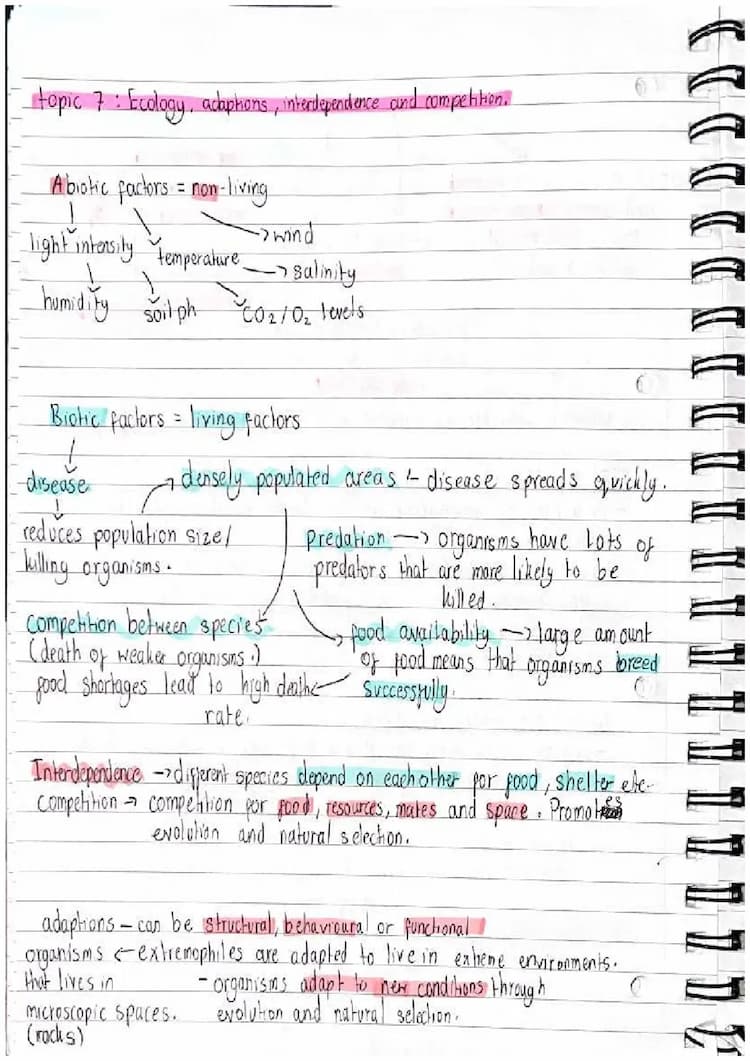 topic 7 : Ecology, adaptions, interdependence and competition.
Abiotic factors = non-living
light intensity
temperature
wind
salinity
humidity
soil ph
CO2/O2 levels
Biotic factors = living factors
disease
densely populated areas - disease spreads quickly.
reduces population size/
killing organisms.
predation → organisms have lots of
predators that are more likely to be
killed.
competition between species
(death of weaker organisms.)
food shortages lead to high death
rate.
food availability → large amount
of food means that organisms breed
successfully.
Interdependence → different species depend on each other for food, shelter etc.
Competition → competition for food, resources, mates and space. Promotes
evolution and natural selection.
adaptions - can be structural, behavioural or functional
organisms ← extremophiles are adapted to live in extreme environments.
that lives in
microscopic spaces.
(rocks)
- organisms adapt to new conditions through
evolution and natural selection.